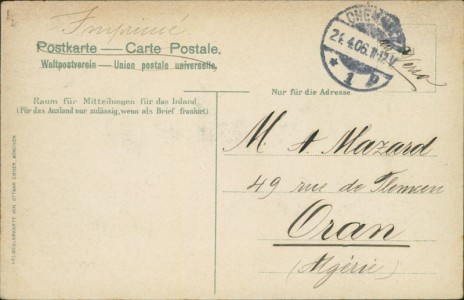 Imprimé
Postkarte — Carte Postale.
Weltpostverein — Union postale universelle.
Raum für Mitteilungen für das Inland.
(Für das Ausland nur zulässig, wenn als Brief frankiert)
CHEMNITZ
24.4.06.11-12V.
* 1 p
Nur für die Adresse
M. A. Mazard
49 rue de Tlemcen
Oran
(Algérie)